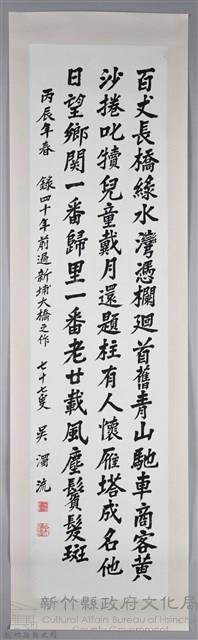 百丈長橋綠水灣憑欄廻首舊青山馳車商客黃
沙捲叱犢兒童戴月還題柱有人懷雁塔成名他
日望鄉関一番歸里一番老廿載風塵鬢髮斑
丙辰年春 錄四十年前過新埔大橋之作 七十七叟 吳濁流
新竹縣政府文化局
Cultural Affairs Bureau of Hsinchu
County Government